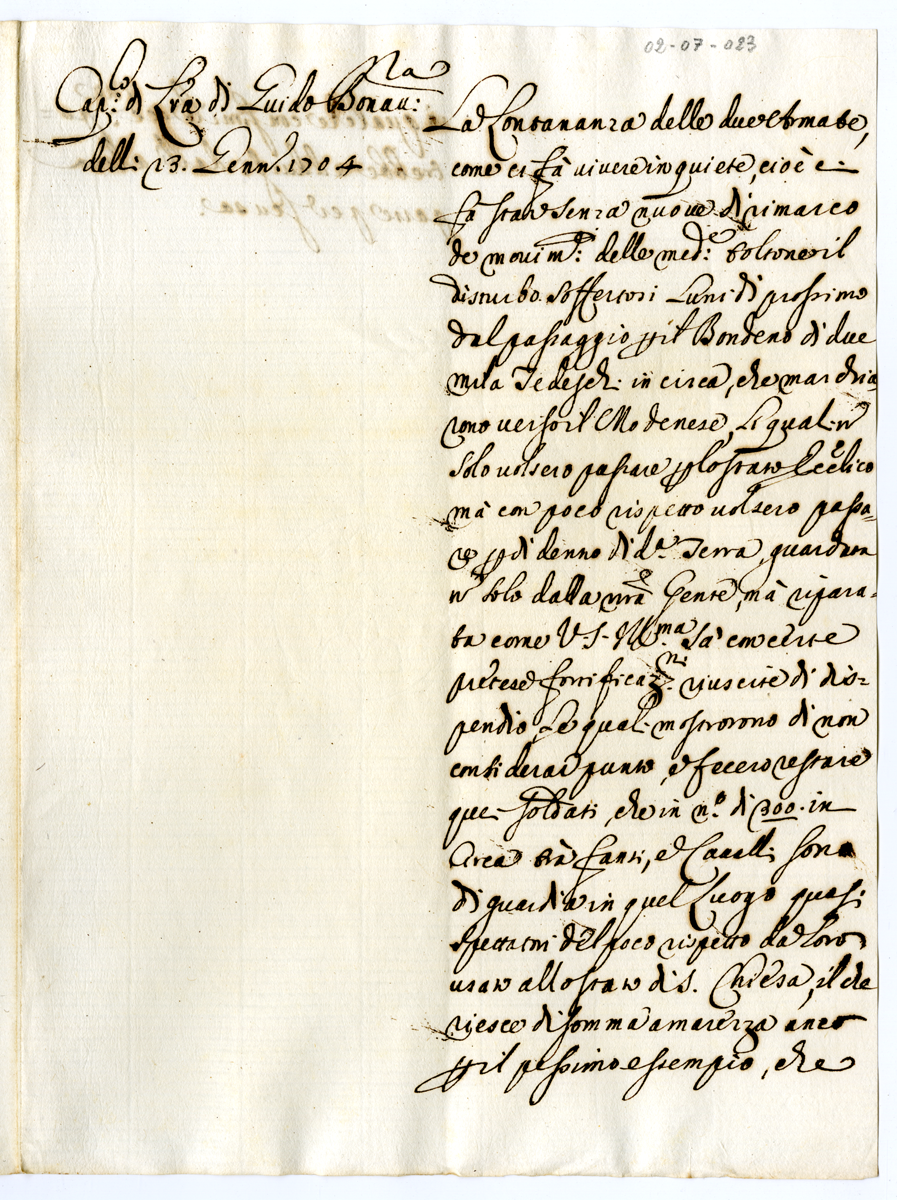 02-07-023
Cap.lo di Lra di Guido Bonau:ra
dell: 23. Genn.o 1704
La Lontananza delle due Armate,
come ci fà vivere in quiete, cioè e
fa star senza nuove di rimarco
de movim.ti delle med.e toltone il
disturbo soffertosi Lunidì prossimo
dal passaggio p il Bondeno di due
mila Tedesch: in circa, che marchia-
rono verso il Modenese, Le qual: n
solo volsero passare p lo stato Eccl.ico
mà con poco rispetto volsero passa-
re p di denno di d.a Terra, guardata
n solo dalla nra Gente, mà ripara-
ta come V S. Ill.ma sà con certe
pretese fortificaz.ni riuscite di dis-
pendio, Le qual: mostrorono di non
considerar punto, e fecero restare
que soldati, che in n.o di 300. in
circa trà fanti, e Cavalli sono
di guardia in quel Luogo quasi
spettatori del poco rispetto da loro
usato allo stato di S. Chiesa, il che
riesce di somma amarezza anco
p il pessimo essempio, che